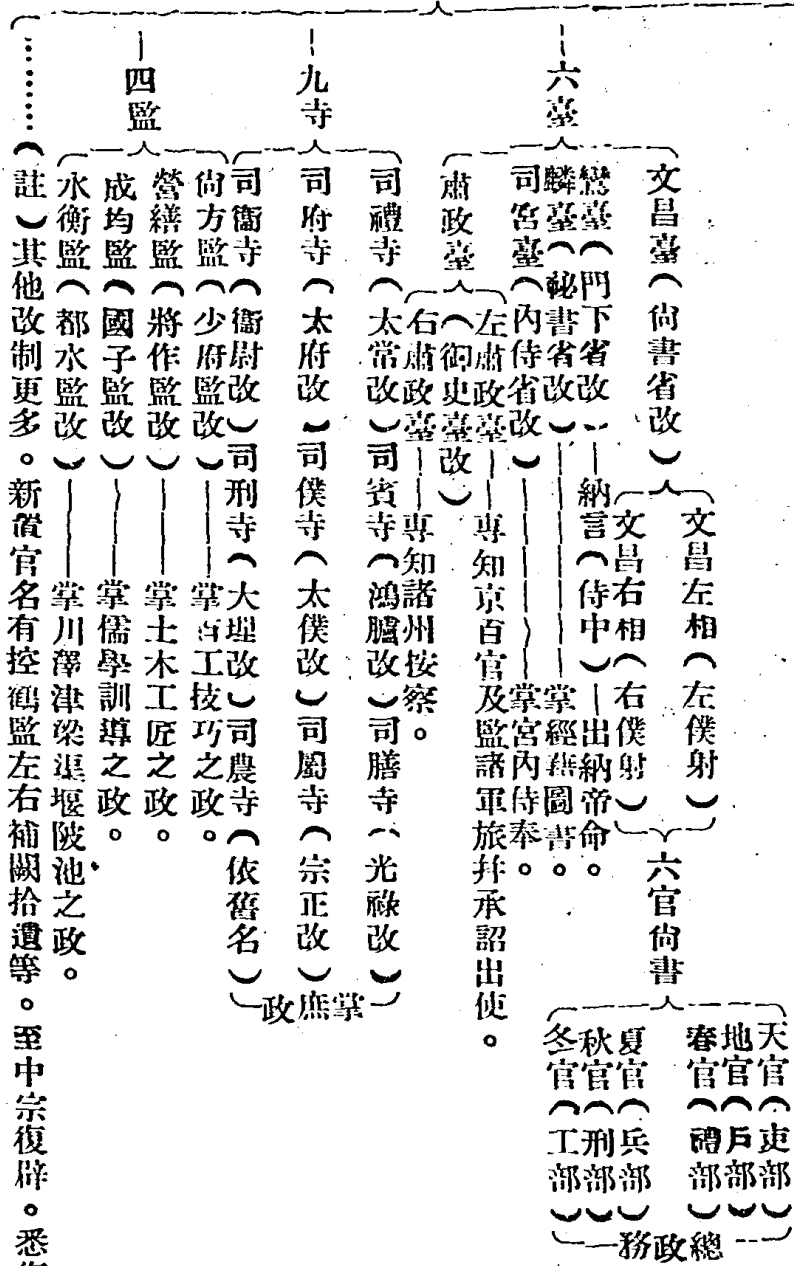 六臺
文昌臺（尙書省改）
文昌左相（左僕射）
文昌右相（右僕射）
六官尙書
天官（吏部）
地官（戶部）
春官（禮部）
夏官（兵部）
秋官（刑部）
冬官（工部）
總政務
鸞臺（門下省改）——納言（侍中）—出納帝命。
麟臺（秘書省改）——掌經籍圖書。
司宮臺（內侍省改）——掌宮內侍奉。
肅政臺（御史臺改）
左肅政臺——專知京百官及監諸軍旅幷承詔出使。
右肅政臺——專知諸州按察。
九寺
司禮寺（太常改）司賓寺（鴻臚改）司膳寺（光祿改）
司府寺（太府改）司僕寺（太僕改）司屬寺（宗正改）
司衞寺（衞尉改）司刑寺（大理改）司農寺（依舊名）
掌庶政
四監
尙方監（少府監改）——掌百工技巧之政。
營繕監（將作監改）——掌土木工匠之政。
成均監（國子監改）——掌儒學訓導之政。
水衡監（都水監改）——掌川澤津梁渠堰陂池之政。
………（註）其他改制更多。新置官名有控鶴監左右補闕拾遺等。至中宗復辟。悉